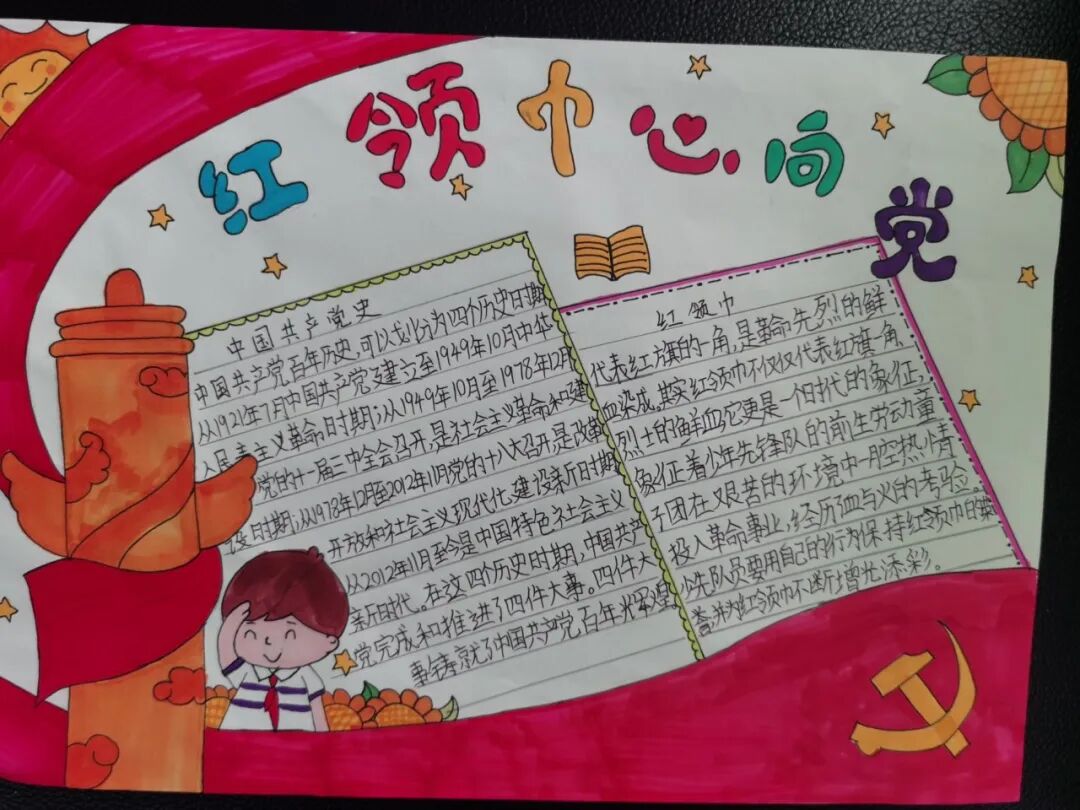 红领巾心向党
中国共产党史
中国共产党百年历史,可以划分为四个历史时期
从1921年7月中国共产党建立至1949年10月中华
人民主义革命时期;从1949年10月至1978年12月
党的十一届三中全会召开,是社会主义革命和建
设时期;从1978年12月至2012年11月党的十八大召开,是改革
开放和社会主义现代化建设新时期
从2012年11月至今是中国特色社会主义
新时代。在这四个历史时期,中国共产
党完成和推进了四件大事。四件大
事铸就了中国共产党百年辉煌
红领巾
代表红旗的一角,是革命先烈的鲜
血染成,其实红领巾不仅仅代表红旗一角、
烈士的鲜血,它更是一个时代的象征,
象征着少年先锋队的前生劳动童
子团在艰苦的环境中一腔热情
投入革命事业,经历血与火的考验。
少先队员要用自己的行为保持红领巾日
誉并为红领巾不断增光添彩。